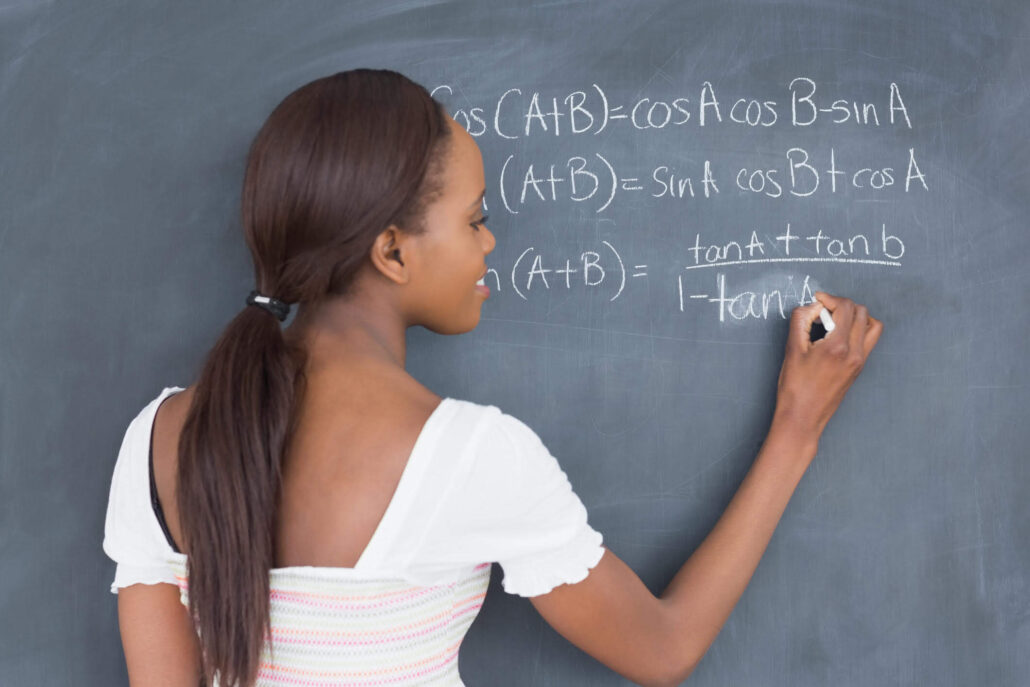 Cos(A+B)=cosA cosB-sinA
(A+B)= sinA cosB+cosA
(A+B)= tanA+tanb
1-tanA